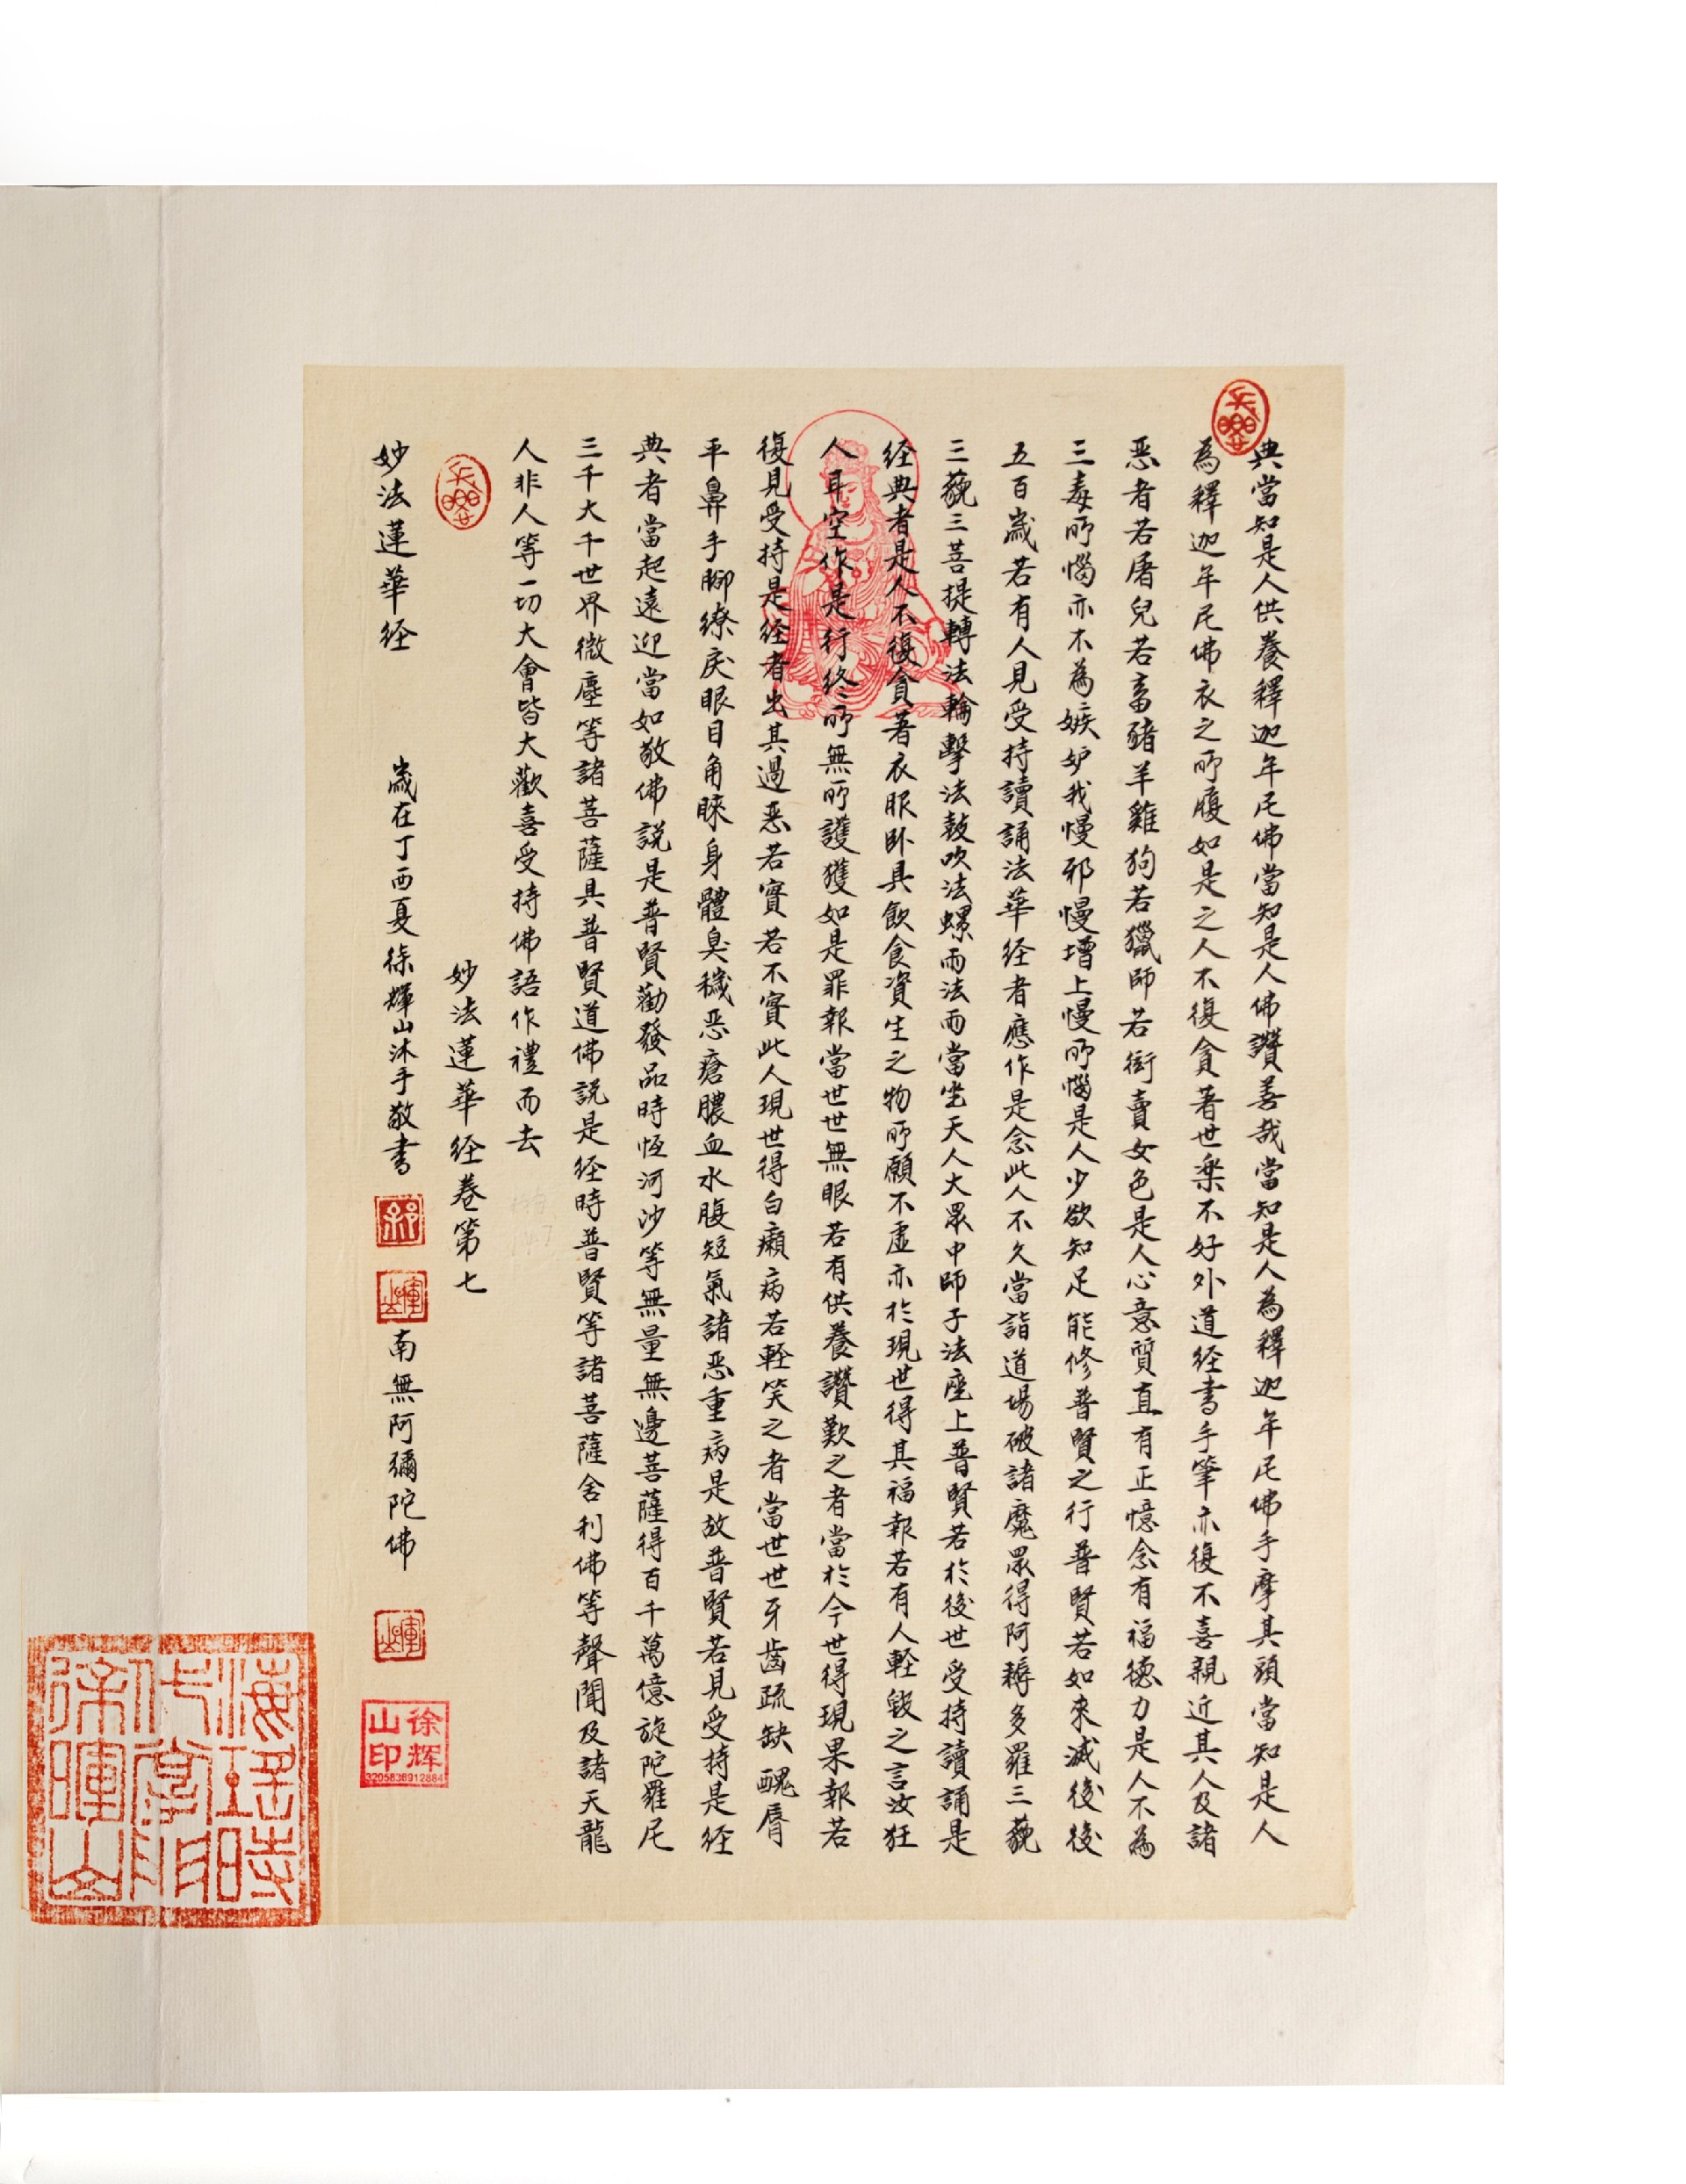 典當知是人供養釋迦牟尼佛當知是人佛讚善哉當知是人為釋迦牟尼佛手摩其頭當知是人
為釋迦牟尼佛衣之所覆如是之人不復貪著世樂不好外道経書手筆亦復不喜親近其人及諸
恶者若屠兒若畜豬羊雞狗若獵師若衒賣女色是人心意質直有正憶念有福德力是人不為
三毒所惱亦不為嫉妒我慢邪慢增上慢所惱是人少欲知足能修普賢之行普賢若如來滅後後
五百歲若有人見受持讀誦法華経者應作是念此人不久當詣道場破諸魔眾得阿耨多羅三藐
三藐三菩提轉法輪擊法鼓吹法螺雨法雨當坐天人大眾中師子法座上普賢若於後世受持讀誦是
経典者是人不復貪著衣服卧具飲食資生之物所願不虛亦於現世得其福報若有人軽毀之言汝狂
人耳空作是行終所無所護獲如是罪報當世世無眼若有供養讚歎之者當於今世得現果報若
復見受持是経者出其過恶若實若不實此人現世得白癩病若軽笑之者當世世牙齒疏缺醜脣
平鼻手腳繚戾眼目角睞身體臭穢恶瘡膿血水腹短氣諸恶重病是故普賢若見受持是経
典者當起遠迎當如敬佛説是普賢勸發品時恆河沙等無量無邊菩薩得百千萬億旋陀羅尼
三千大千世界微塵等諸菩薩具普賢道佛説是経時普賢等諸菩薩舍利佛等聲聞及諸天龍
人非人等一切大會皆大歡喜受持佛語作禮而去
妙法蓮華経卷第七
妙法蓮華経 歲在丁酉夏徐輝山沐手敬書 南無阿彌陀佛
徐辉
山印
3205836912884